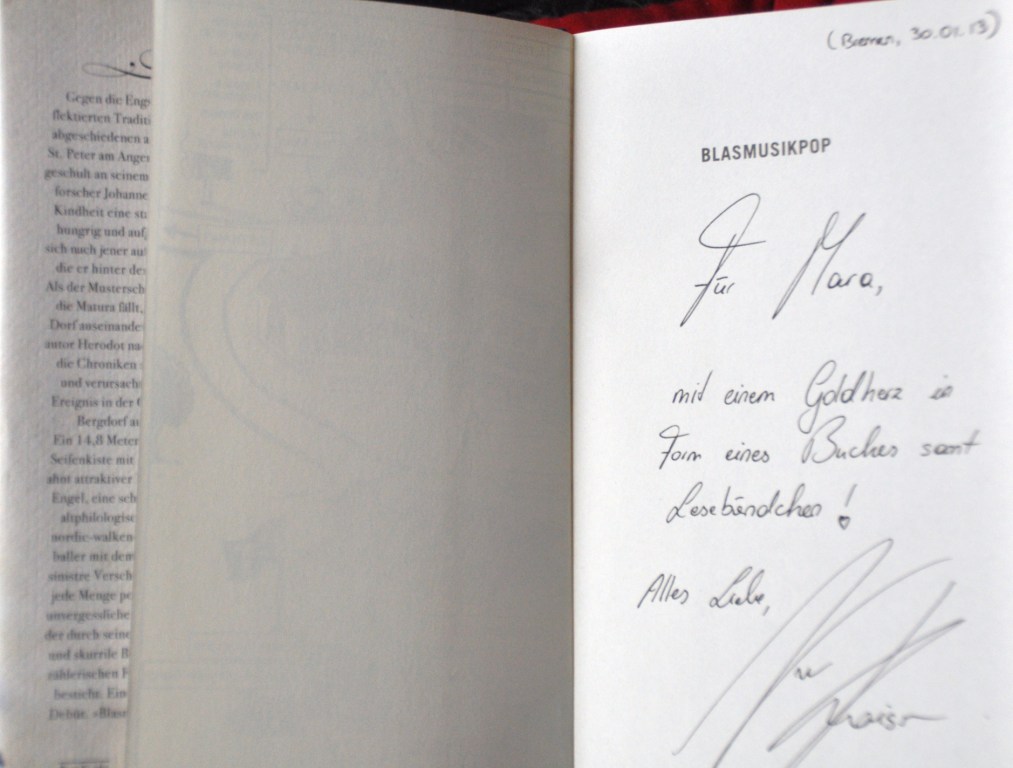 Gegen die Eng
flektierten Tradit
abgeschiedenen a
St. Peter am Anger
geschult an seinem
forscher Johanne
Kindheit eine st
hungrig und auf
sich nach jener au
die er hinter de
Als der Mustersch
die Matura fällt,
Dorf auseinande
autor Herodot na
die Chroniken
und verursach
Ereignis in der
Bergdorf au
Ein 14,8 Meter
Seifenkiste mit
ahnt attraktiver
Engel, eine sch
altphilologisc
nordic-walken
baller mit dem
sinistre Versch
jede Menge pe
unvergessliche
der durch seine
und skurrile B
zählerischen F
besticht. Ein
Debüt. »Blas
(Bremen, 30.01.13)
BLASMUSIKPOP
Für Mara,
mit einem Goldherz in
Form eines Buches samt
Lesebändchen!
Alles Liebe,